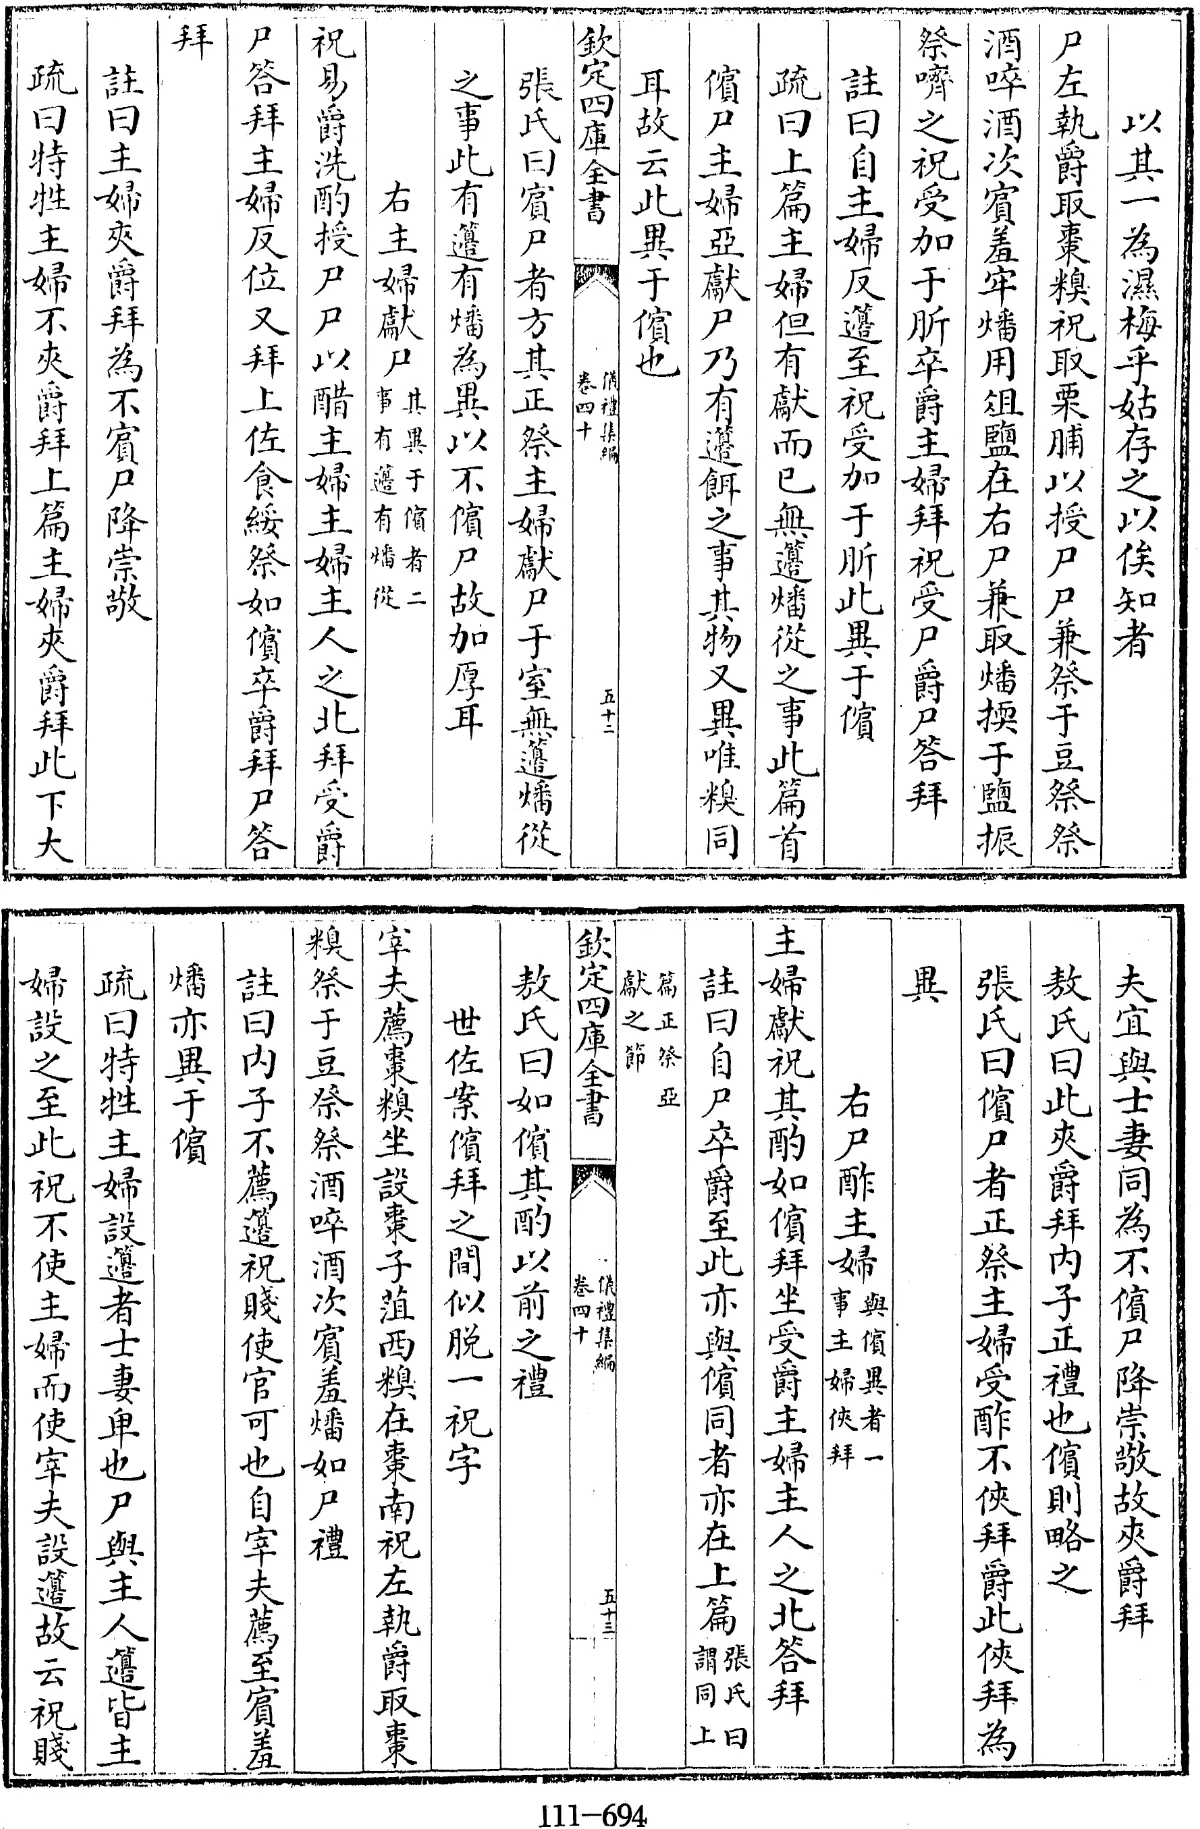 以其一為濕梅乎姑存之以俟知者
尸左執爵取棗糗祝取栗脯以授尸尸兼祭于豆祭祭
酒啐酒次賓羞牢燔用俎鹽在右尸兼取燔擩于鹽振
祭嚌之祝受加于肵卒爵主婦拜祝受尸爵尸答拜
註曰自主婦反籩至祝受加于肵此異于儐
疏曰上篇主婦但有獻而已無籩燔從之事此篇首
儐尸主婦亞獻尸乃有籩餌之事其物又異唯糗同
耳故云此異于儐也
欽定四庫全書
儀禮集編
卷四十
五十二
張氏曰賓尸者方其正祭主婦獻尸于室無籩燔從
之事此有籩有燔為異以不儐尸故加厚耳
右主婦獻尸其異于儐者二
事有籩有燔從
祝易爵洗酌授尸尸以醋主婦主婦主人之北拜受爵
尸答拜主婦反位又拜上佐食綏祭如儐卒爵拜尸答
拜
註曰主婦夾爵拜為不賓尸降崇敬
疏曰特牲主婦不夾爵拜上篇主婦夾爵拜此下大
夫宜與士妻同為不儐尸降崇敬故夾爵拜
敖氏曰此夾爵拜内子正禮也儐則略之
張氏曰儐尸者正祭主婦受酢不俠拜爵此俠拜為
異
右尸酢主婦與儐異者一
事主婦俠拜
主婦獻祝其酌如儐拜坐受爵主婦主人之北答拜
註曰自尸卒爵至此亦與儐同者亦在上篇張氏曰
謂同上
篇正祭亞
獻之節
欽定四庫全書
儀禮集編
卷四十
五十三
敖氏曰如儐其酌以前之禮
世佐案儐拜之間似脱一祝字
宰夫薦棗糗坐設棗于菹西糗在棗南祝左執爵取棗
糗祭于豆祭祭酒啐酒次賓羞燔如尸禮
註曰内子不薦籩祝賤使官可也自宰夫薦至賓羞
燔亦異于儐
疏曰特牲主婦設籩者士妻卑也尸與主人籩皆主
婦設之至此祝不使主婦而使宰夫設籩故云祝賤
111-694